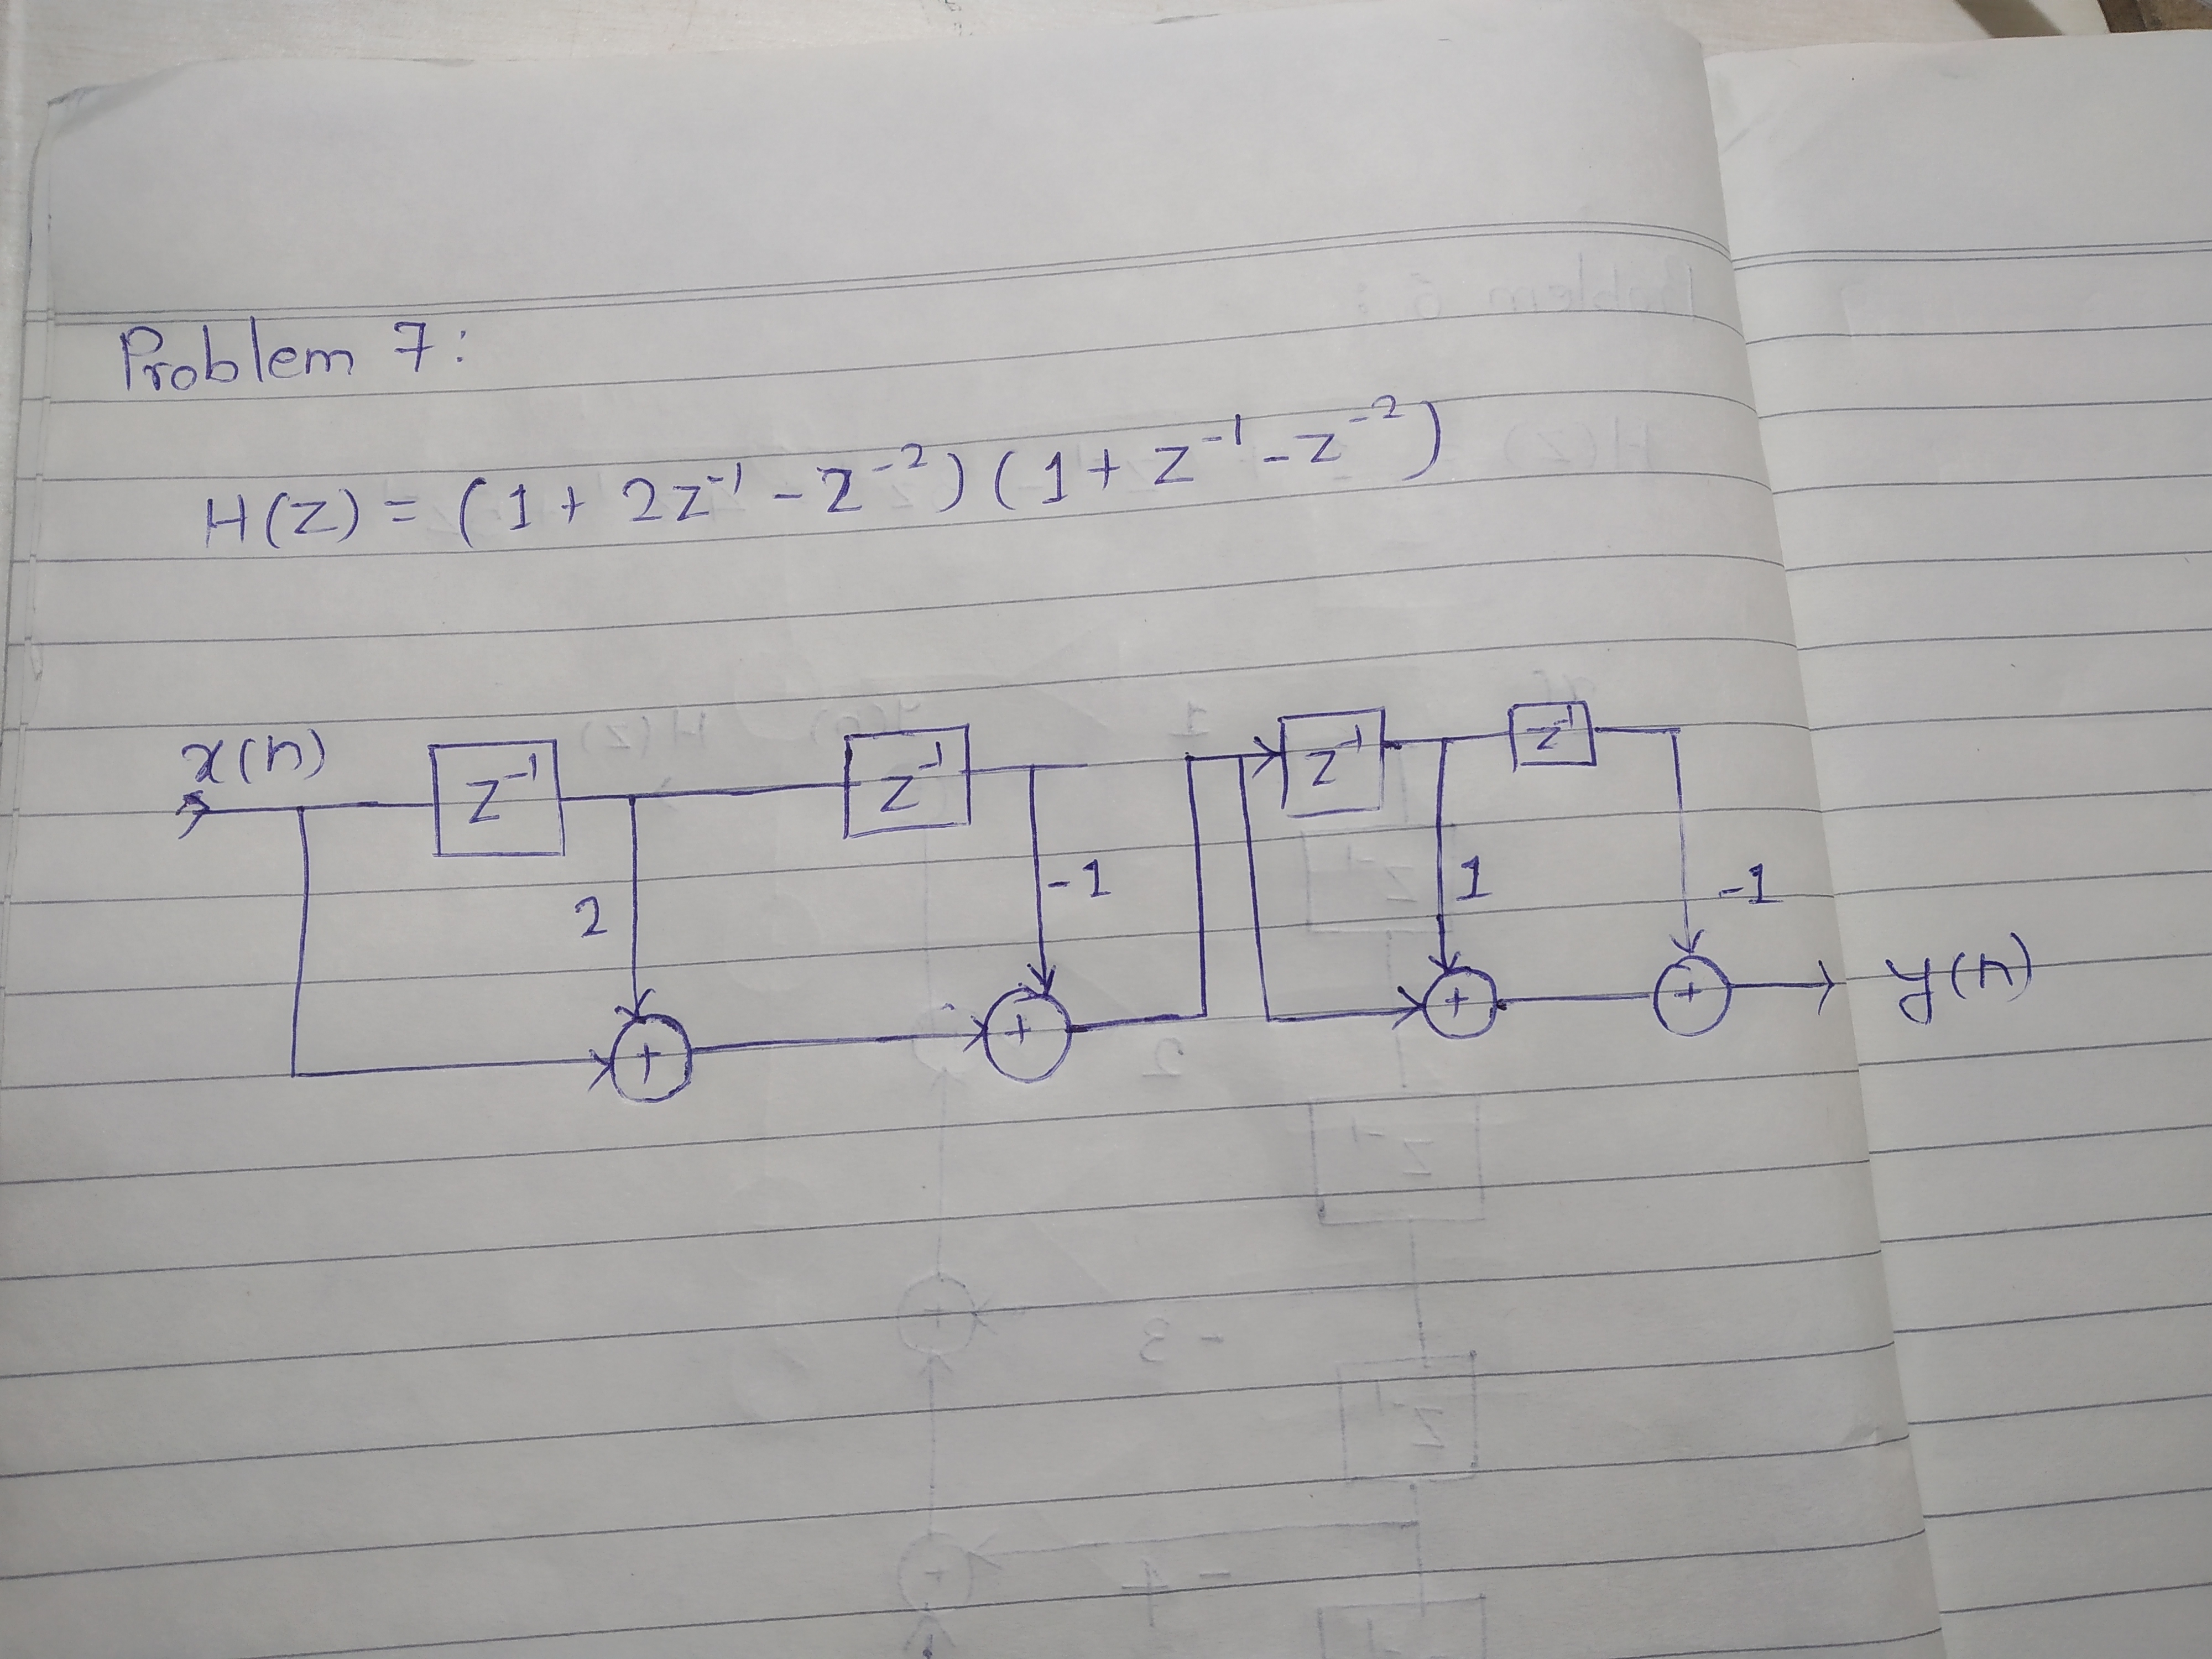 Problem 7:
H(z) = (1 + 2z⁻¹ - z⁻²) (1 + z⁻¹ - z⁻²)
x(n) z⁻¹ z⁻¹ z⁻¹ z⁻¹
2 -1 1 -1
+ + + + y(n)